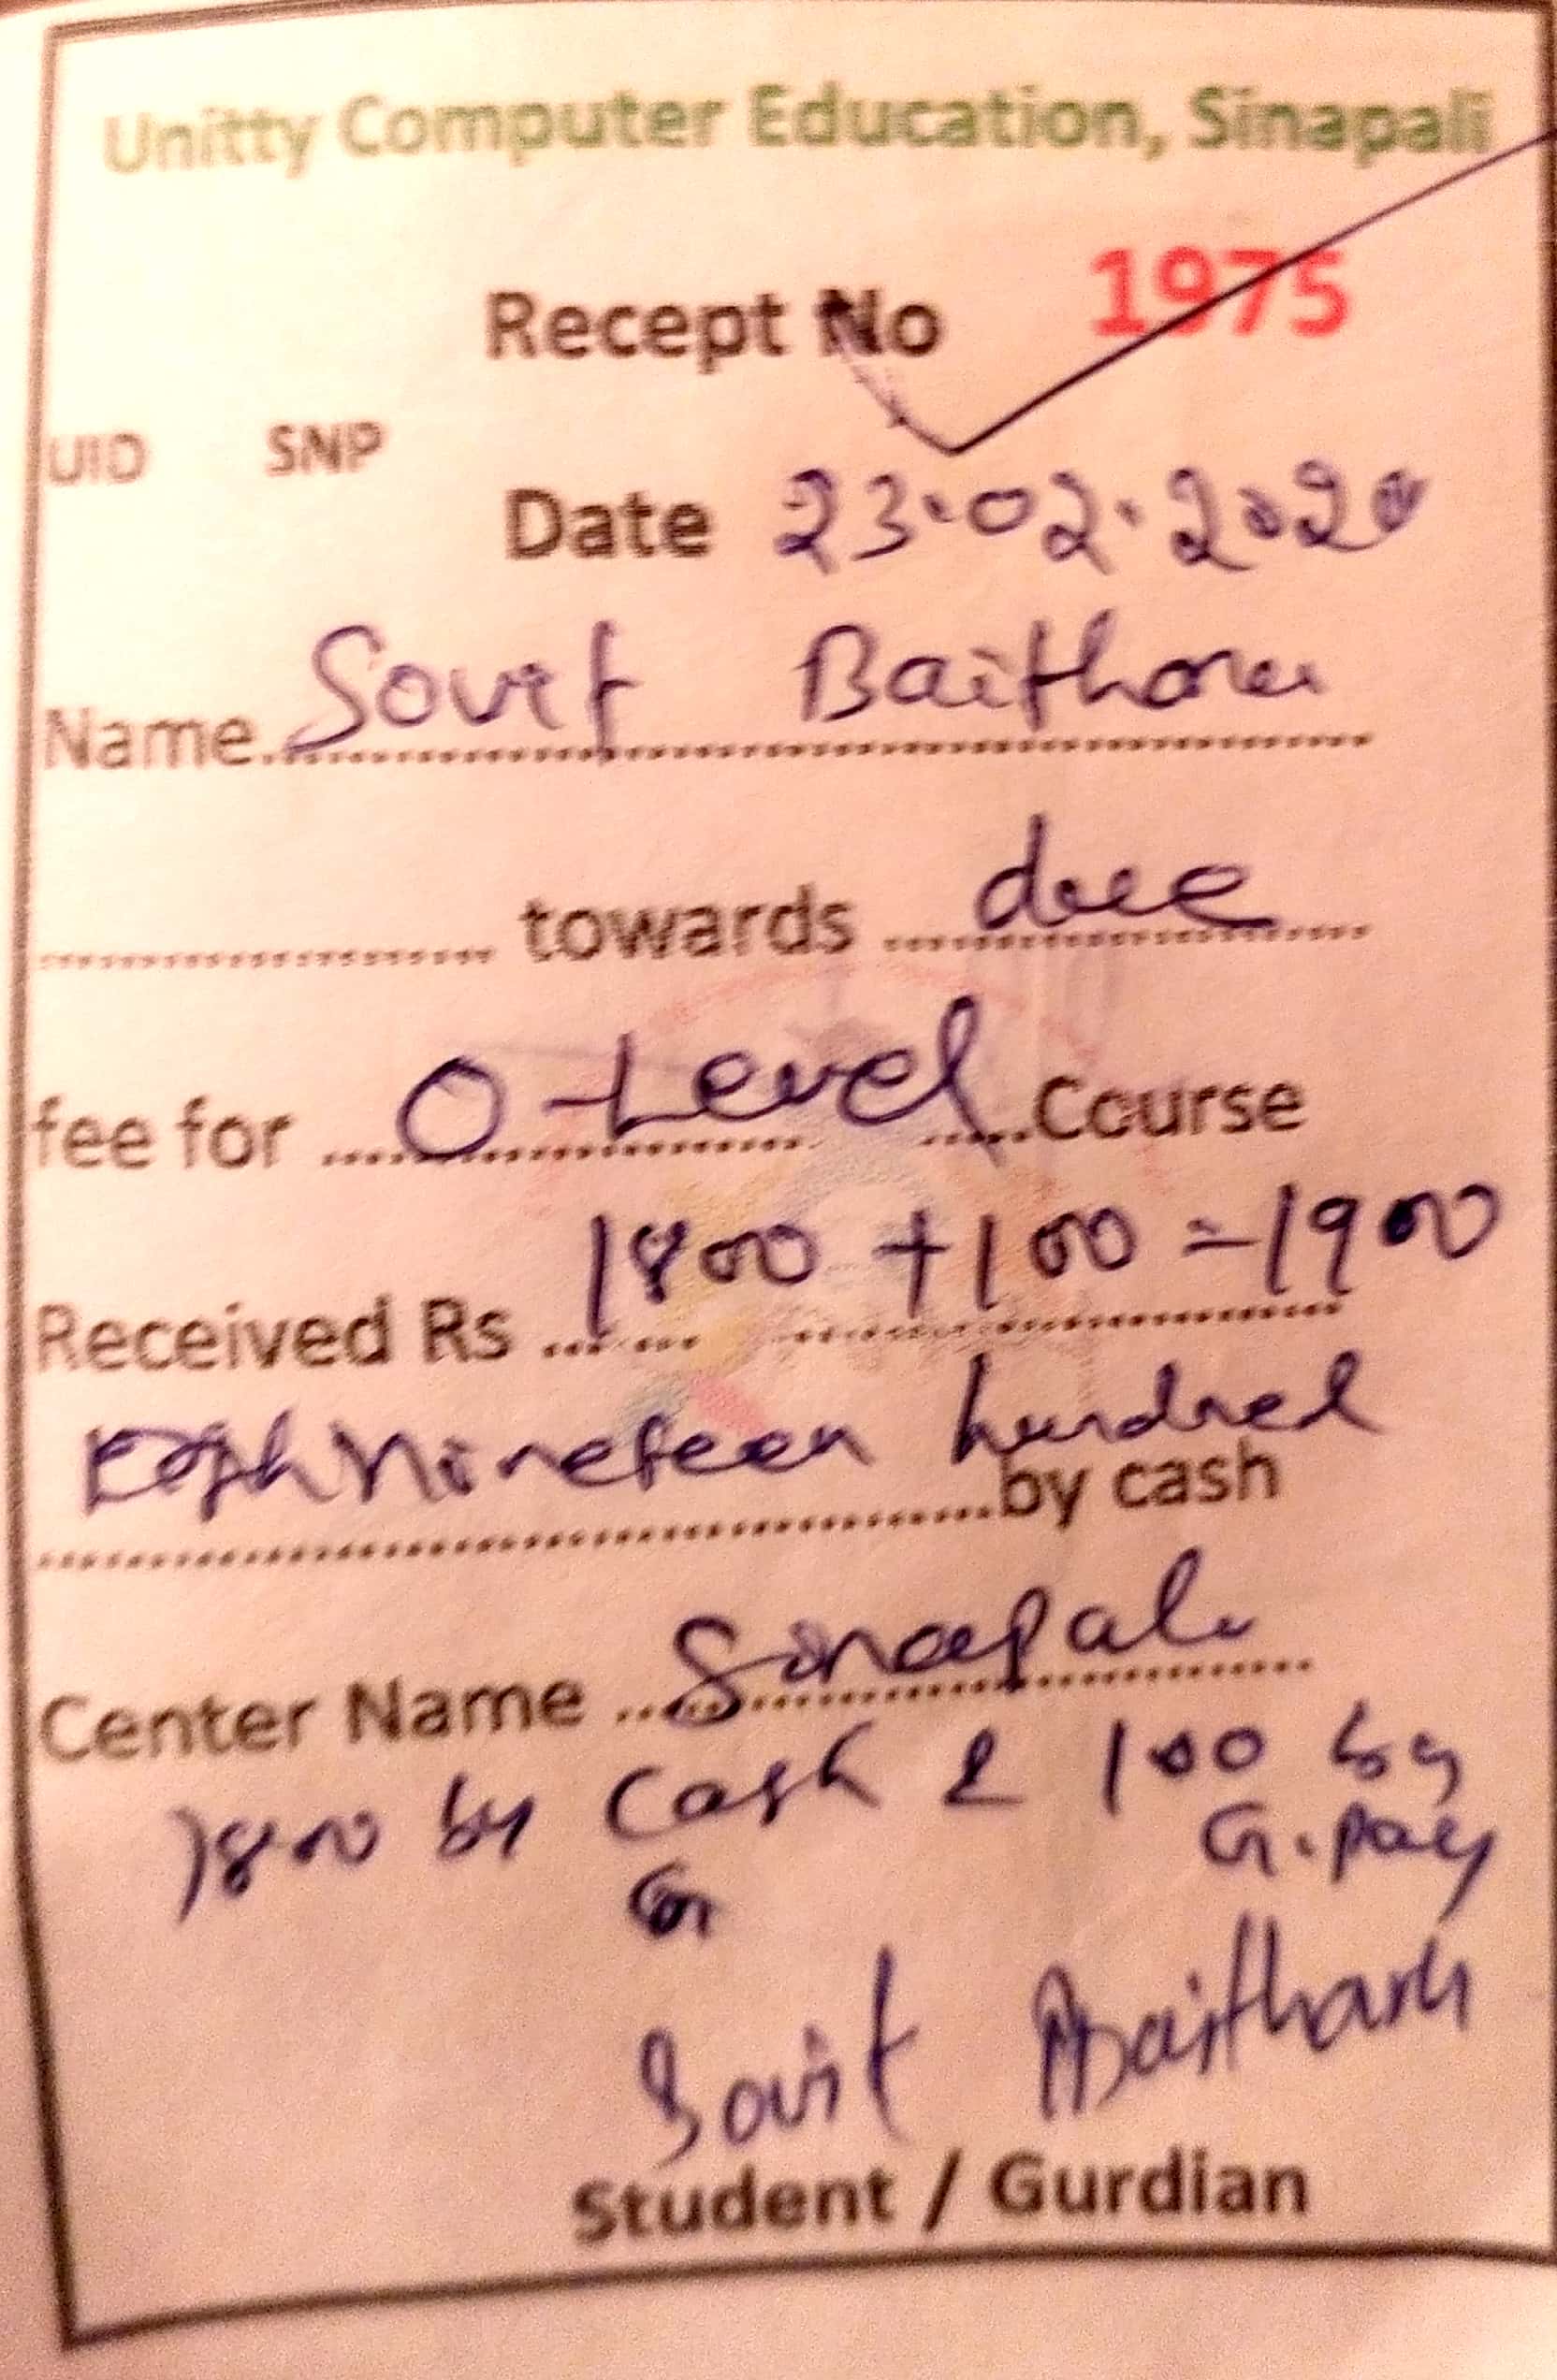 Unitty Computer Education, Sinapali
Recept No 1975
UID SNP
Date 23.02.2020
Name.............Sovit Baitharu
.................... towards ...due...
fee for ....O-Level.....Course
Received Rs ...1800 + 100 = 1900
Nineteen hundred
..............................by cash
Center Name ...Sinapali
1800 by Cash & 100 by
G.pay
G
Sovit Baitharu
Student / Gurdian